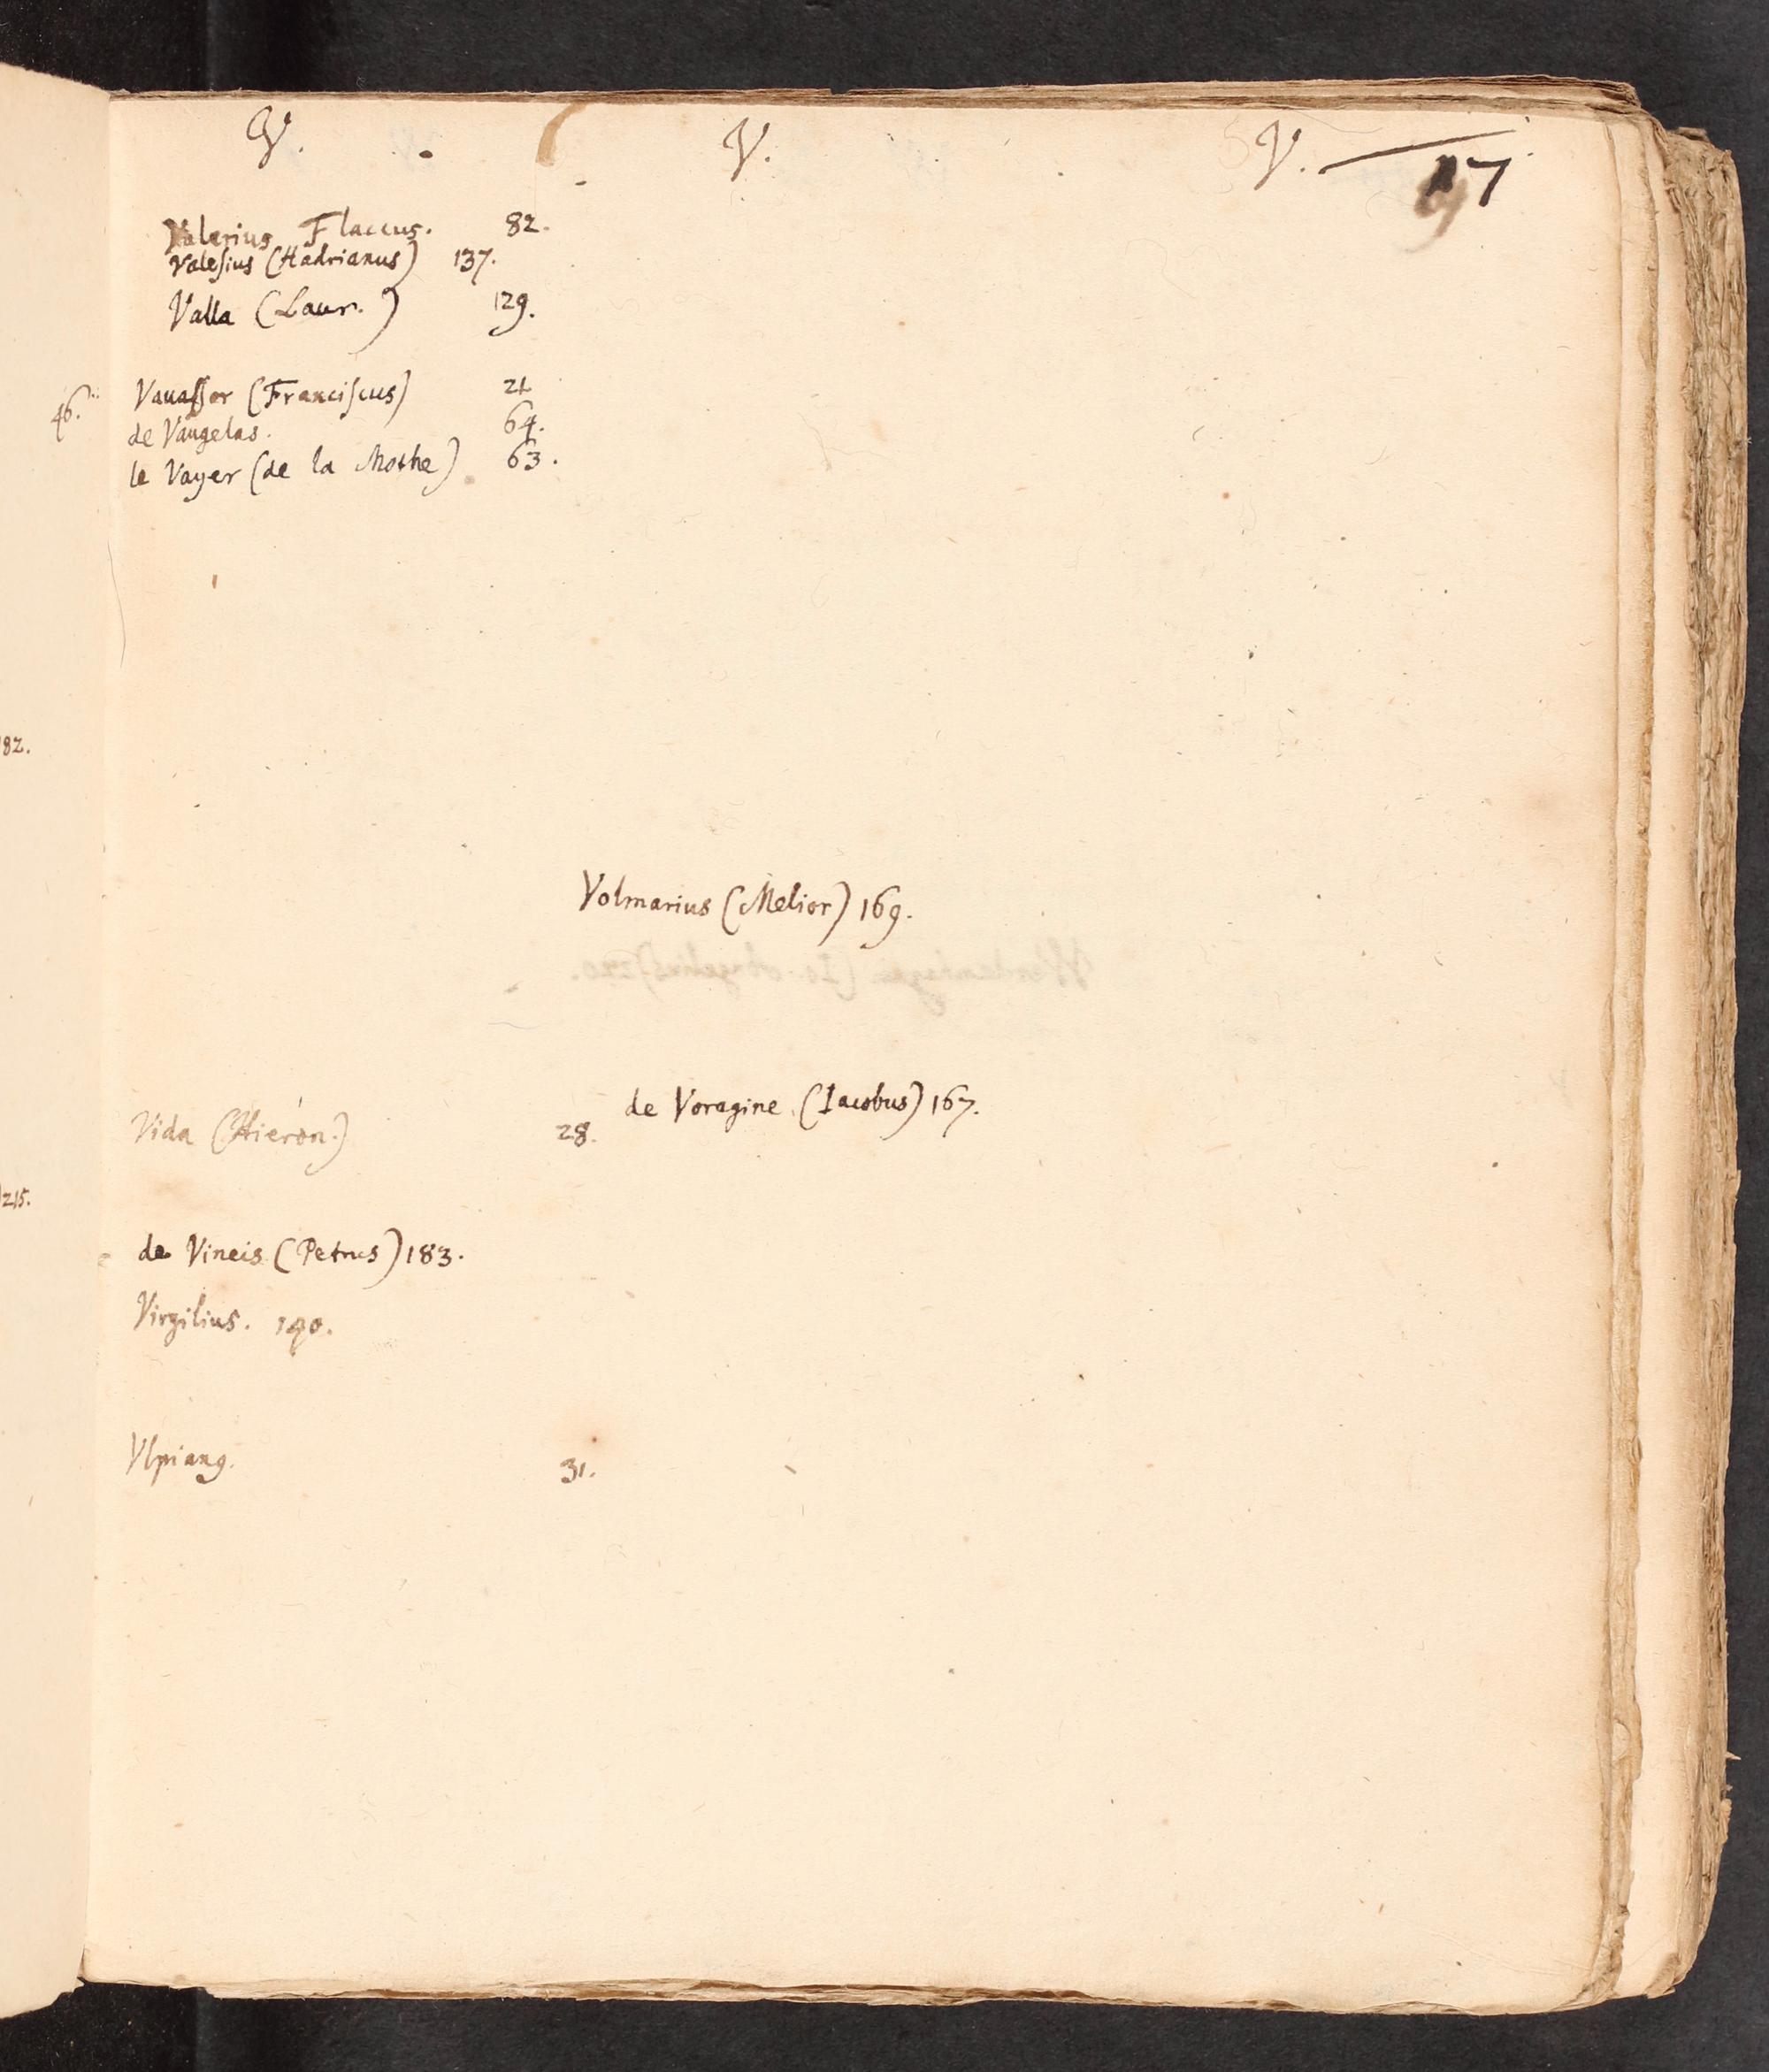 V. V. V.
17
Valerius Flaccus. 82.
Valeſius (Hadrianus) 137.
Valla (Laur.) 129.
46.
Vauaſſor (Franciſcus) 21
de Vaugelas. 64.
le Vayer (de la Mothe) 63.
182.
Volmarius (Melior) 169.
de Voragine (Iacobus) 167.
Vida (Hieron.) 28.
215.
de Vineis (Petrus) 183.
Virgilius. 140.
Vlpianꝰ. 31.